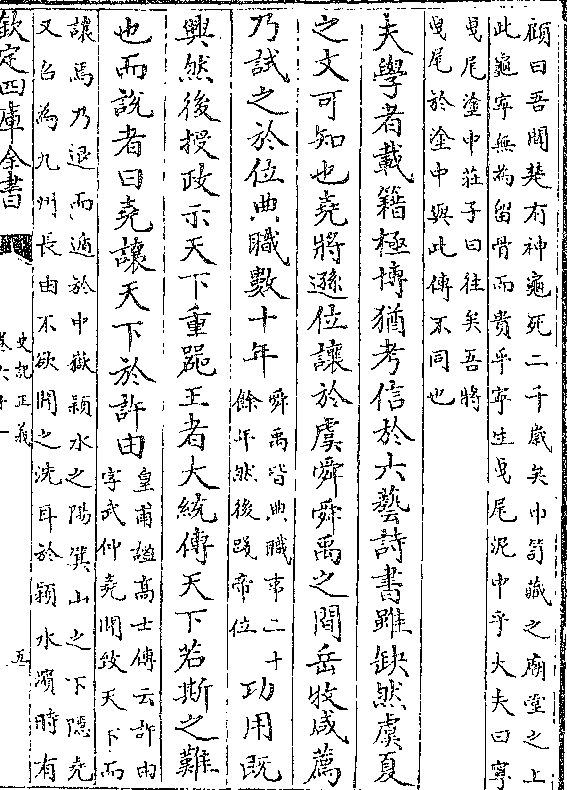 顧曰吾聞楚有神龜死二千歲矣巾笥藏之廟堂之上
此龜寧無為留骨而貴乎寧生曳尾泥中乎大夫曰寧
曳尾塗中莊子曰往矣吾將
曳尾於塗中與此傳不同也
夫學者載籍極博猶考信於六藝詩書雖缺然虞夏
之文可知也堯將遜位讓於虞舜舜禹之間岳牧咸薦
乃試之於位典職數十年
舜禹皆典職事二十
餘年然後踐帝位
功用既
興然後授政示天下重噐王者大統傳天下若斯之難
也而說者曰堯讓天下於許由
皇甫謐高士傳云許由
字武仲堯聞致天下而
讓焉乃退而遁於中嶽潁水之陽箕山之下隱堯
又召為九州長由不欲聞之洗耳於潁水濱時有
欽定四庫全書
史記正義
卷六十一
五